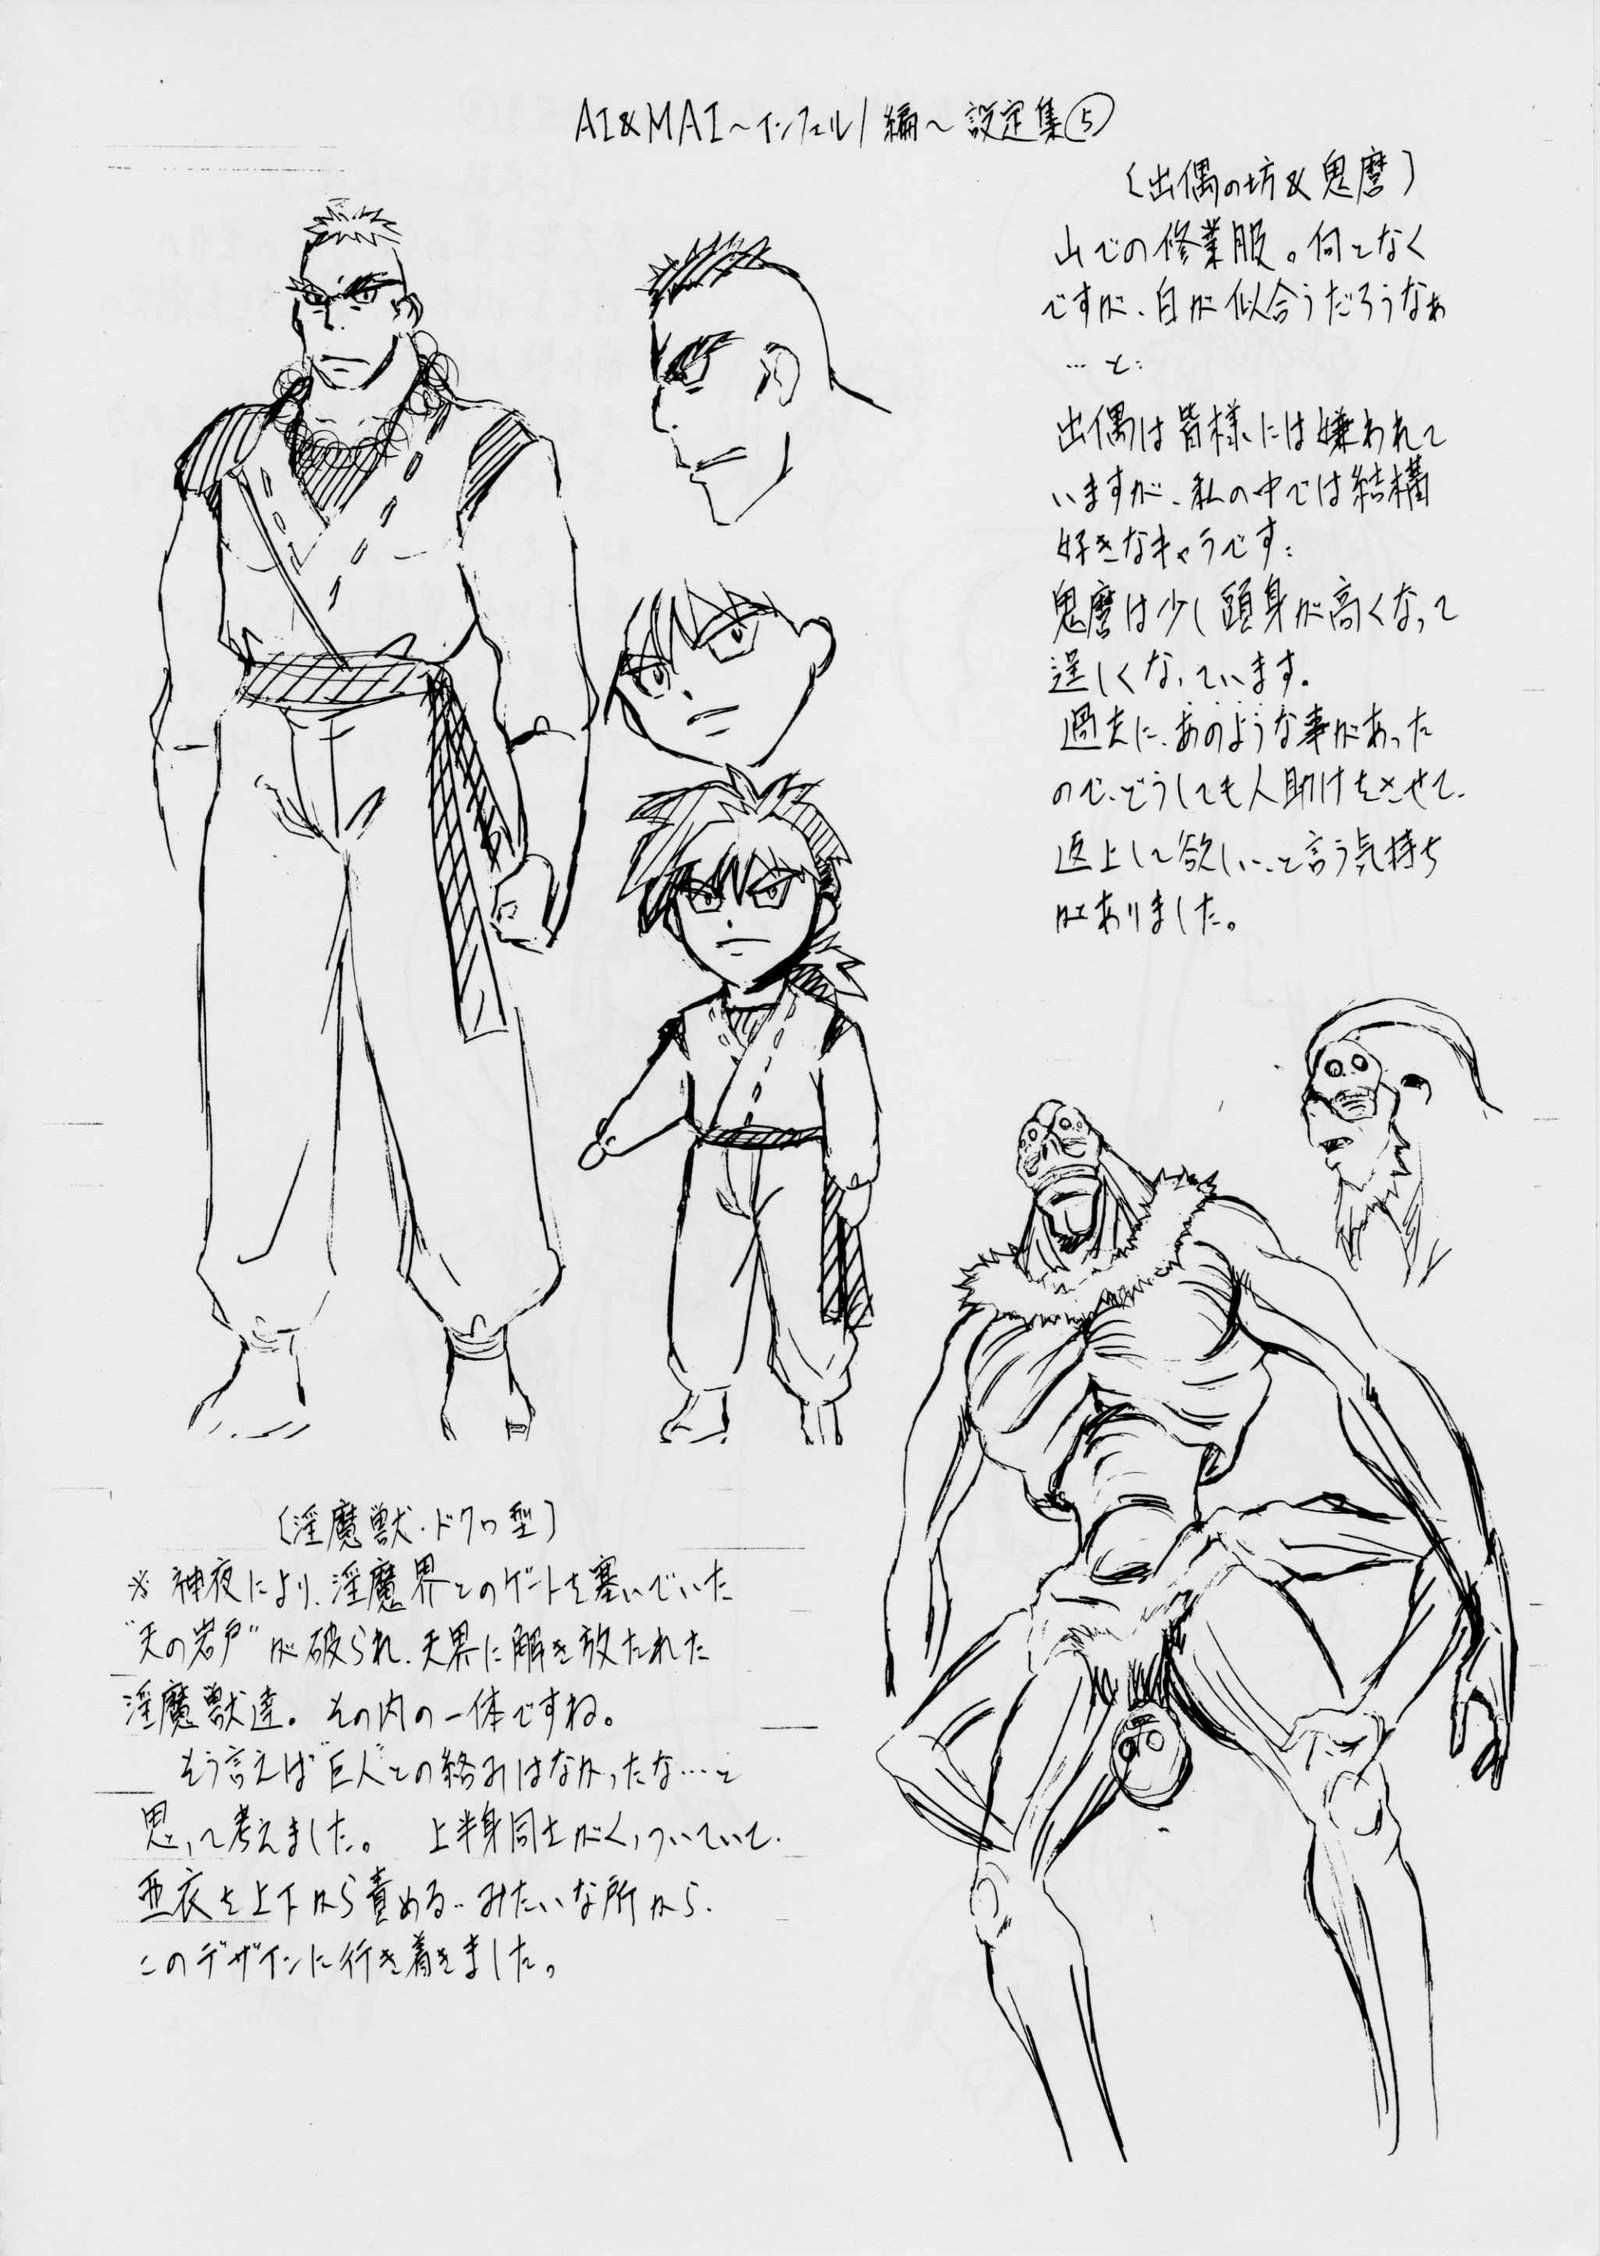 AI&MAI～インフェルノ編～設定集⑤
〔出偶の坊&鬼麿〕
山での修業服。何となく
ですが、白が似合うだろうなぁ
…と…
出偶は皆様には嫌われて
いますが、私の中では結構
好きなキャラです…
鬼麿は少し頭身が高くなって
逞しくなっています。
過去に、あのような事があった
ので、どうしても人助けをさせて、
返上して欲しい…と言う気持ち
はありました。
〔淫魔獣・ドクロ型〕
※神夜により、淫魔界とのゲートを塞いでいた
“天の岩戸”が破られ、天界に解き放たれた
淫魔獣達。その内の一体ですね。
そう言えば“巨人”との絡みはなかったな…と
思って考えました。上半身同士がくっついていて、
亜衣を上下から責める…みたいな所から、
このデザインに行き着きました。